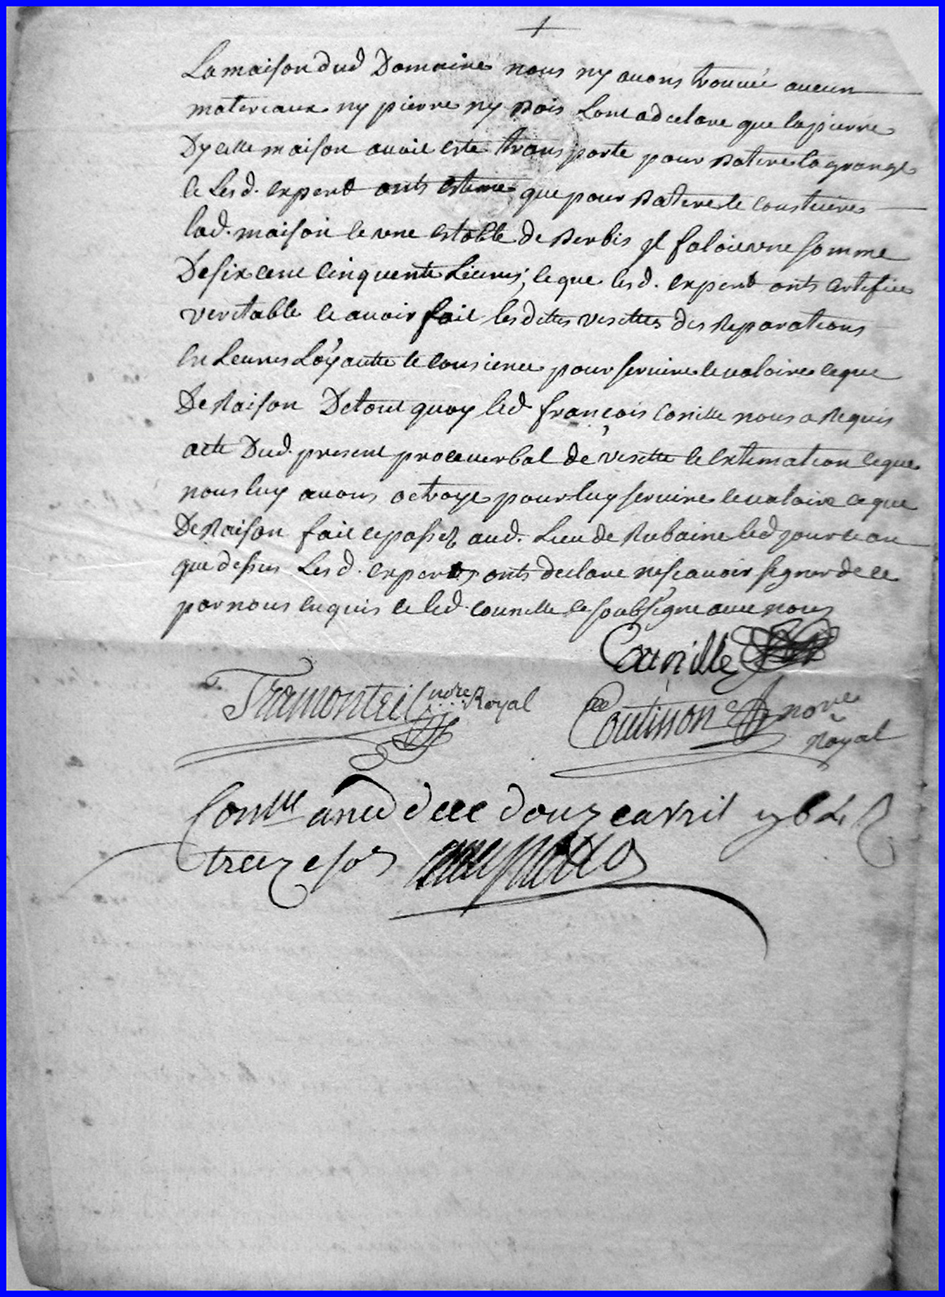 La maison dud Domaine nous ny avons trouvée aucun
materiaux ny pierre ny Bois Lont a declare que la pierre
Dycelle maison avoit este transporte pour Batire la grange
e Lesd. expert onts estime que pour Batire le construire
lad. maison le une estable de Berbis yl faloit une somme
De six cent cinquente Livres, ce que lesd. expert onts certifier
veritable e avoir fait lesdittes visittes des Reparations
en Leures Loyautte le consience pour servire e valoire ce que
De Raison De tout quoy led françois Conille nous a Requis
acte Dud. present proceverbal de visitte le estimation ce que
nous luy avons octroye pour luy servire e valoire ce que
De Raison fait e passez aud. Lieu de Rubaine led jour e an
que dessus Lesd. experts onts declare ne scavoir signer de ce
par nous enquis e led. counille ce soubsigne avec nous
Counille
Tramonteil nore Royal Coutisson nore
Royal
Conlle a ned d ce douze avril
treize sos